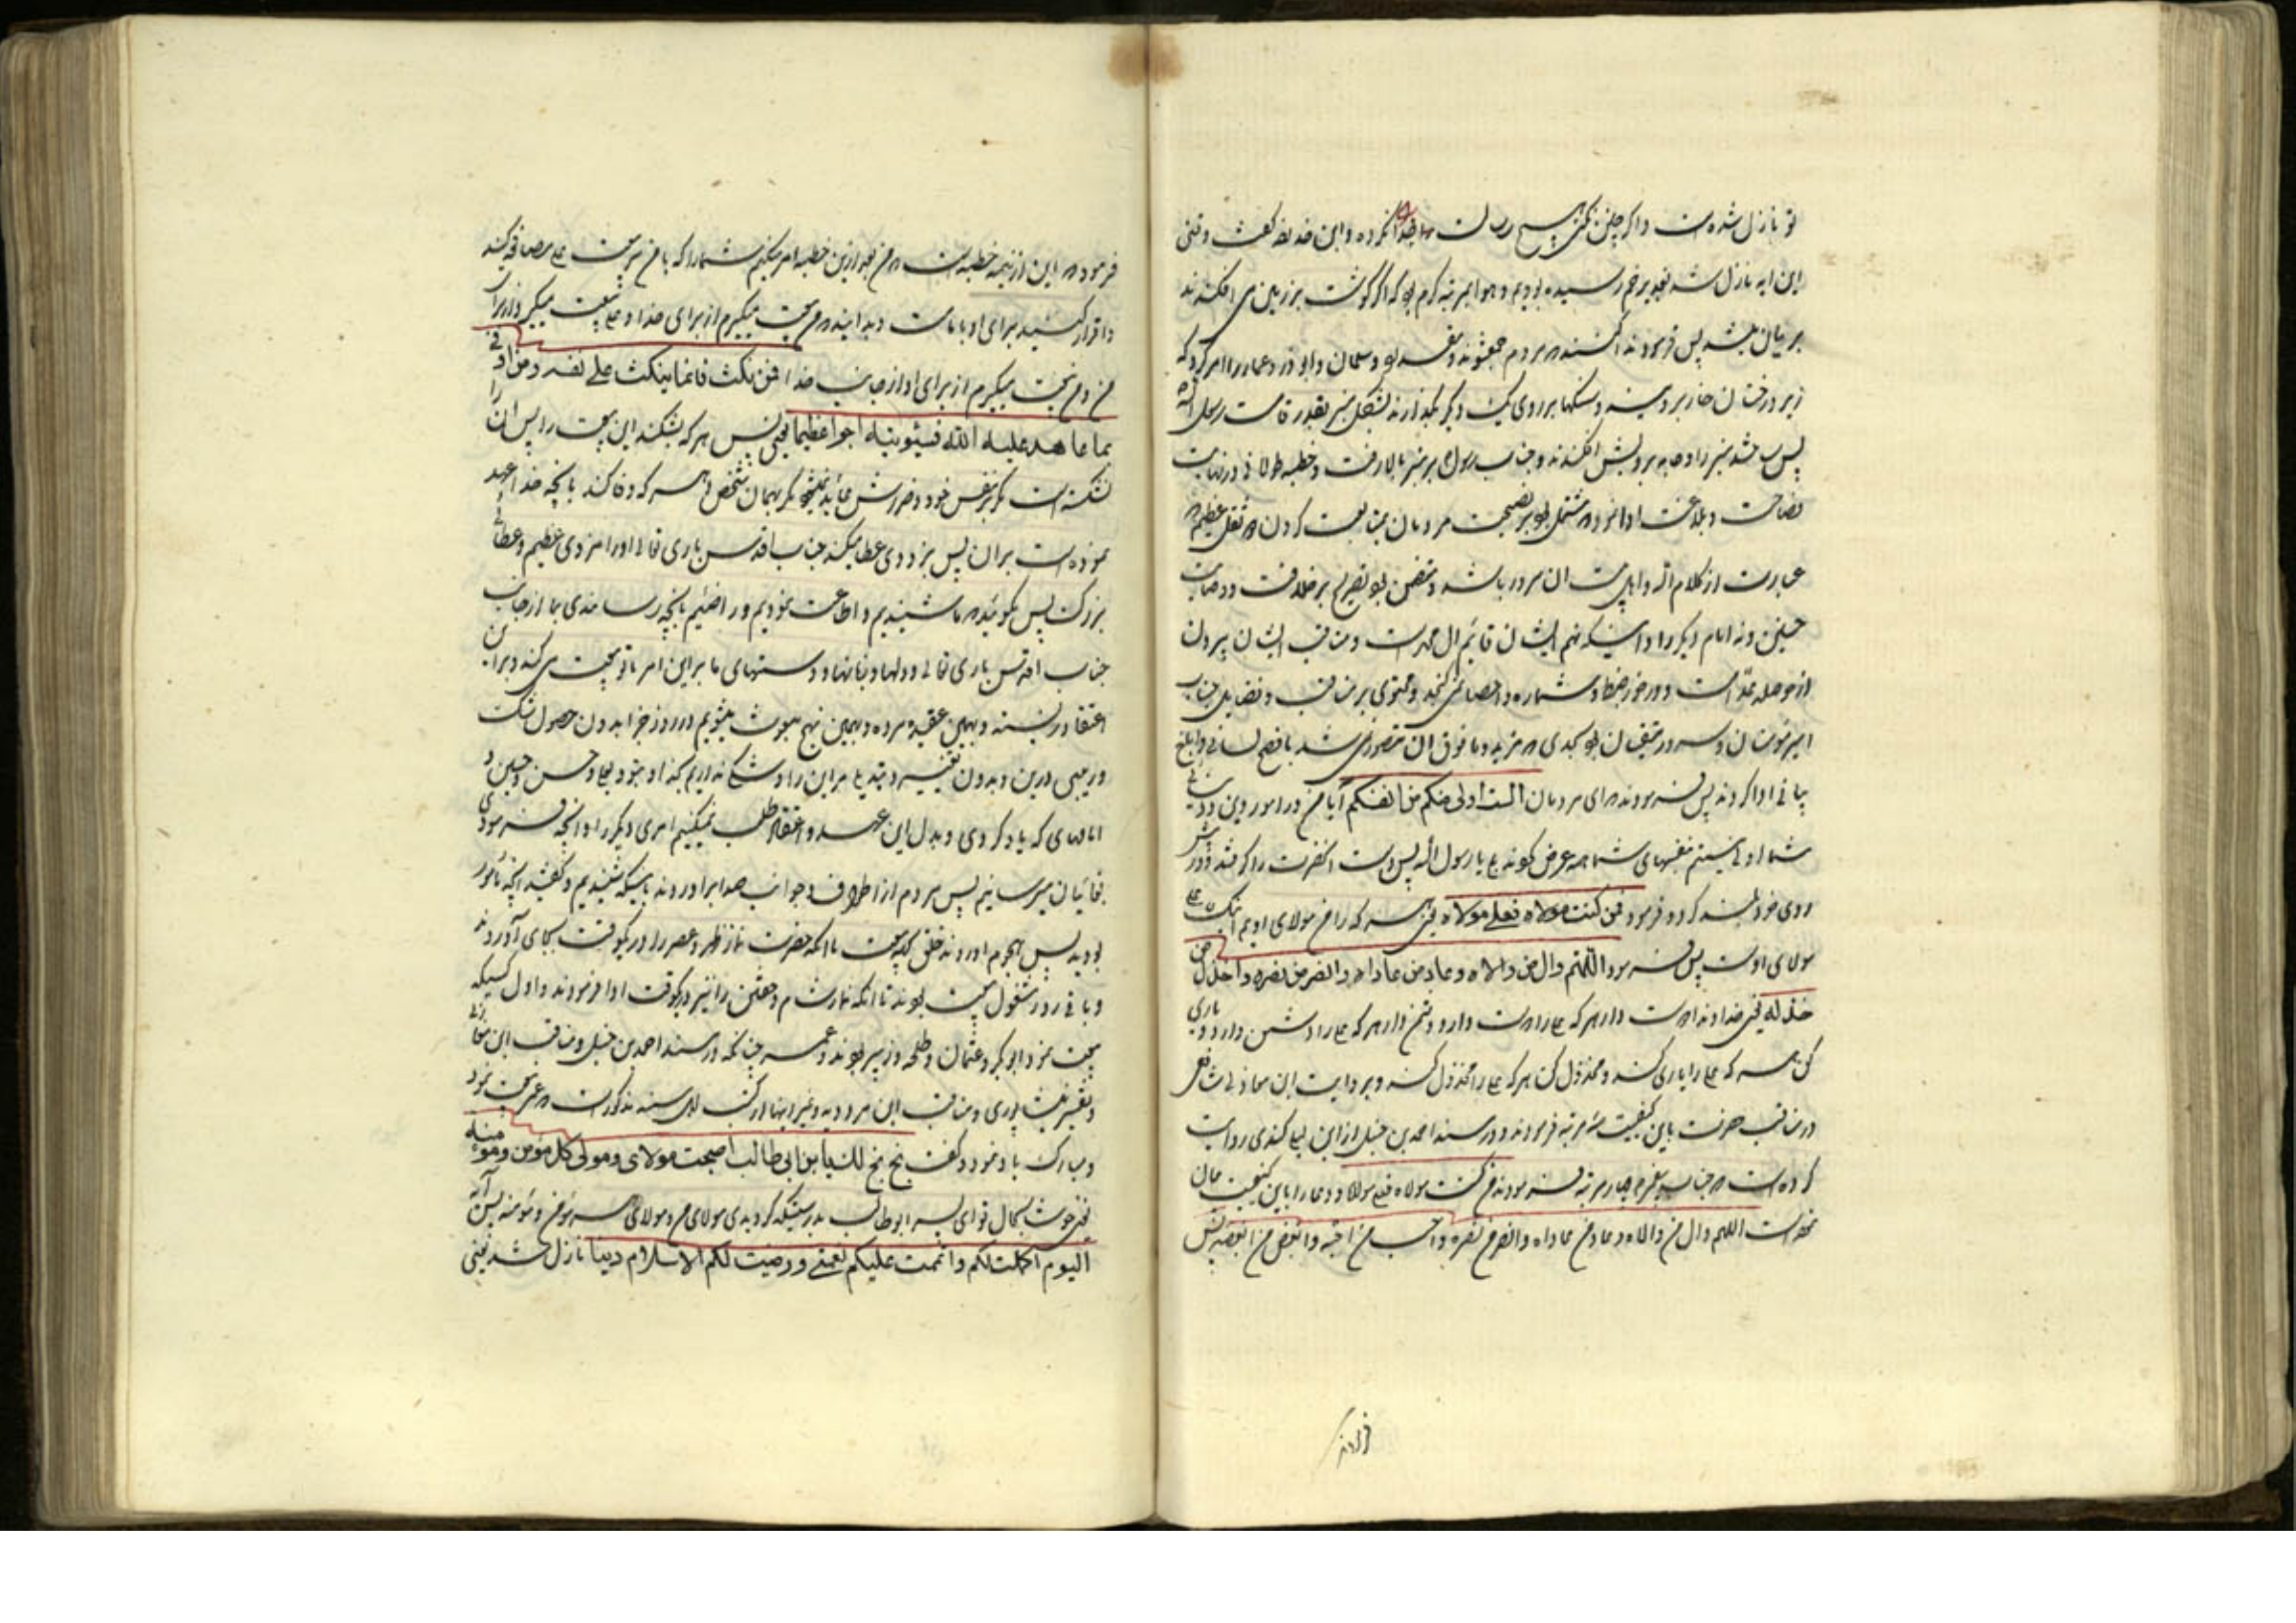 تو نازل شده است و اگر چنین نکنی هیچ رسالت خدا نکرده و این حذیفه گفت وقتی
این ایه نازل شد بغدیر خم رسیده بودیم و هوا بمرتبه گرم بود که اگر گوشت بر زمین می افکندند
بریان میشد پس فرمودند مردم جمع شوند و مقداد و سلمان و ابوذر و عمار را امر کرد که
زیر درختان خار بروبند و سنگها بر روی یک دیگر بگذارند بشکل منبر بقدر قامت رسول الله
پس ساختند منبر را و جامه بر رویش افکندند و جناب رسول بر منبر بالا رفت و خطبه طولانی در نهایت
فصاحت و بلاغت ادا نمود که مشتمل بود بر نصیحت مردمان بمتابعت کردن ثقل عظیم که
عبارت از کلام الله و اهل بیت ان سرور باشد و متضمن بود تصریح بر خلافت و وصایت
حسنین و نه امام دیگر را و اینکه نهم ایشان قائم ال محمد است و مناقب ایشان بیرون
از حوصله عد است و در خور ضبط و شماره و احصا نمی گنجد و محتوی بر مناقب و فضایل جناب
امیر مومنان و سرور متقیان بود بحدی که مزید و ما فوق ان متصور نمی شد بافصح لسانی و ابلغ
بیانی ادا کردند پس فرمودند ای مردمان الست اولی منکم من انفسکم آیا من در امور دین و دنیای
شما اولی نیستم بنفسهای شما همه عرض کردند بلی یا رسول الله پس دست انحضرت را گرفتند و در پیش
روی خود بلند کرد و فرمود فمن کنت مولاه فعلی مولاه یعنی هر که را من مولای اویم اینک علی
مولای اوست پس فرمود اللهم وال من والاه و عاد من عاداه و انصر من نصره و اخذل من
خذله یعنی خداوندا دوست دار هر که علی را دوست دارد و دشمن دار هر که علی را دشمن دارد و یاری
کن هر که علی را یاری کند و مخذول کن هر که علی را مخذول کند و بروایت ابن مغازلی شافعی
در مناقب حضرت باین کیفیت سه مرتبه فرمودند و در مسند احمد بن حنبل از ابن لیلی کندی روایت
کرده است که جناب پیغمبر چهار مرتبه فرمودند من کنت مولاه فعلی مولاه و دعا را باین کیفیت بیان
نموده است اللهم وال من والاه و عاد من عاداه و انصر من نصره و احب من احبه و ابغض من ابغضه پس
فرمودند
فرمود که این از تتمه خطبه است که من بعد از این خطبه امر میکنم شما را که با من به بیعت علی مصافحه کنید
و اقرار کنید برای او بامامت و بدانید که من بیعت میگیرم از برای خدا و علی بیعت میگیرد از برای
من و من بیعت میگیرم از برای او از جانب خدا فمن نکث فانما ینکث علی نفسه و من اوفی
بما عاهد علیه الله فسیؤتیه اجرا عظیما یعنی پس هر که بشکند این بیعت را پس ان را
نشکسته است مگر بنفس خود و ضررش عاید نمیشود مگر بهمان شخص و هر که وفا کند بانچه خدا عهد
نموده است بر ان پس بزودی عطا میکند جناب اقدس باری تعالی او را مزدی عظیم و عطائی
بزرک پس بگوئید که ما شنیدیم و اطاعت نمودیم و راضئیم بانچه رسانیدی بما از جانب
جناب اقدس باری تعالی و دلها و زبانها و دستهای ما بر این امر با تو بیعت می کند و بر این
اعتقاد زیسته و بهمین عقیده مرده و بهمین نهج مبعوث میشویم در روز جزا بدون حصول شکت
و ریبی درین و بدون تغییر و تبدیل این را و شک نداریم بخدا و بتو و بعلی و حسن و حسین و
امامهای که یاد کردی و بدل این عهد و اعتقاد طلب نمیکنیم امری دیگر را و انچه فرمودی
بغائبان میرسانیم پس مردم از اطراف و جوانب صدا بر اوردند باینکه شنیدیم و گفتند انچه مامور
بودید پس هجوم اوردند خلق به بیعت تا انکه حضرت نماز ظهر و عصر را در یکوقت بجای آوردند
و باقی روز مشغول بیعت بودند تا انکه نماز شام و خفتن را نیز در یکوقت ادا فرمودند و اول کسیکه
بیعت نمود ابو بکر و عثمان و طلحه و زبیر بودند و عمر چنانکه در مسند احمد بن حنبل و مناقب ابن مغازلی
و تفسیر نیشابوری و مناقب ابن مردویه و غیر اینها از کتب اهل سنت مذکور است که عمر بیعت نمود
و مبارک باد نمود و گفت بخ بخ لک یا بن ابی طالب اصبحت مولای و مولی کل مؤمن و مؤمنه
یعنی خوشا بحال تو ای پسر ابو طالب بدرستیکه گردیدی مولای من و مولای هر مؤمن و مؤمنه پس آیه
الیوم اکملت لکم و اتممت علیکم نعمتی و رضیت لکم الاسلام دینا نازل شد یعنی